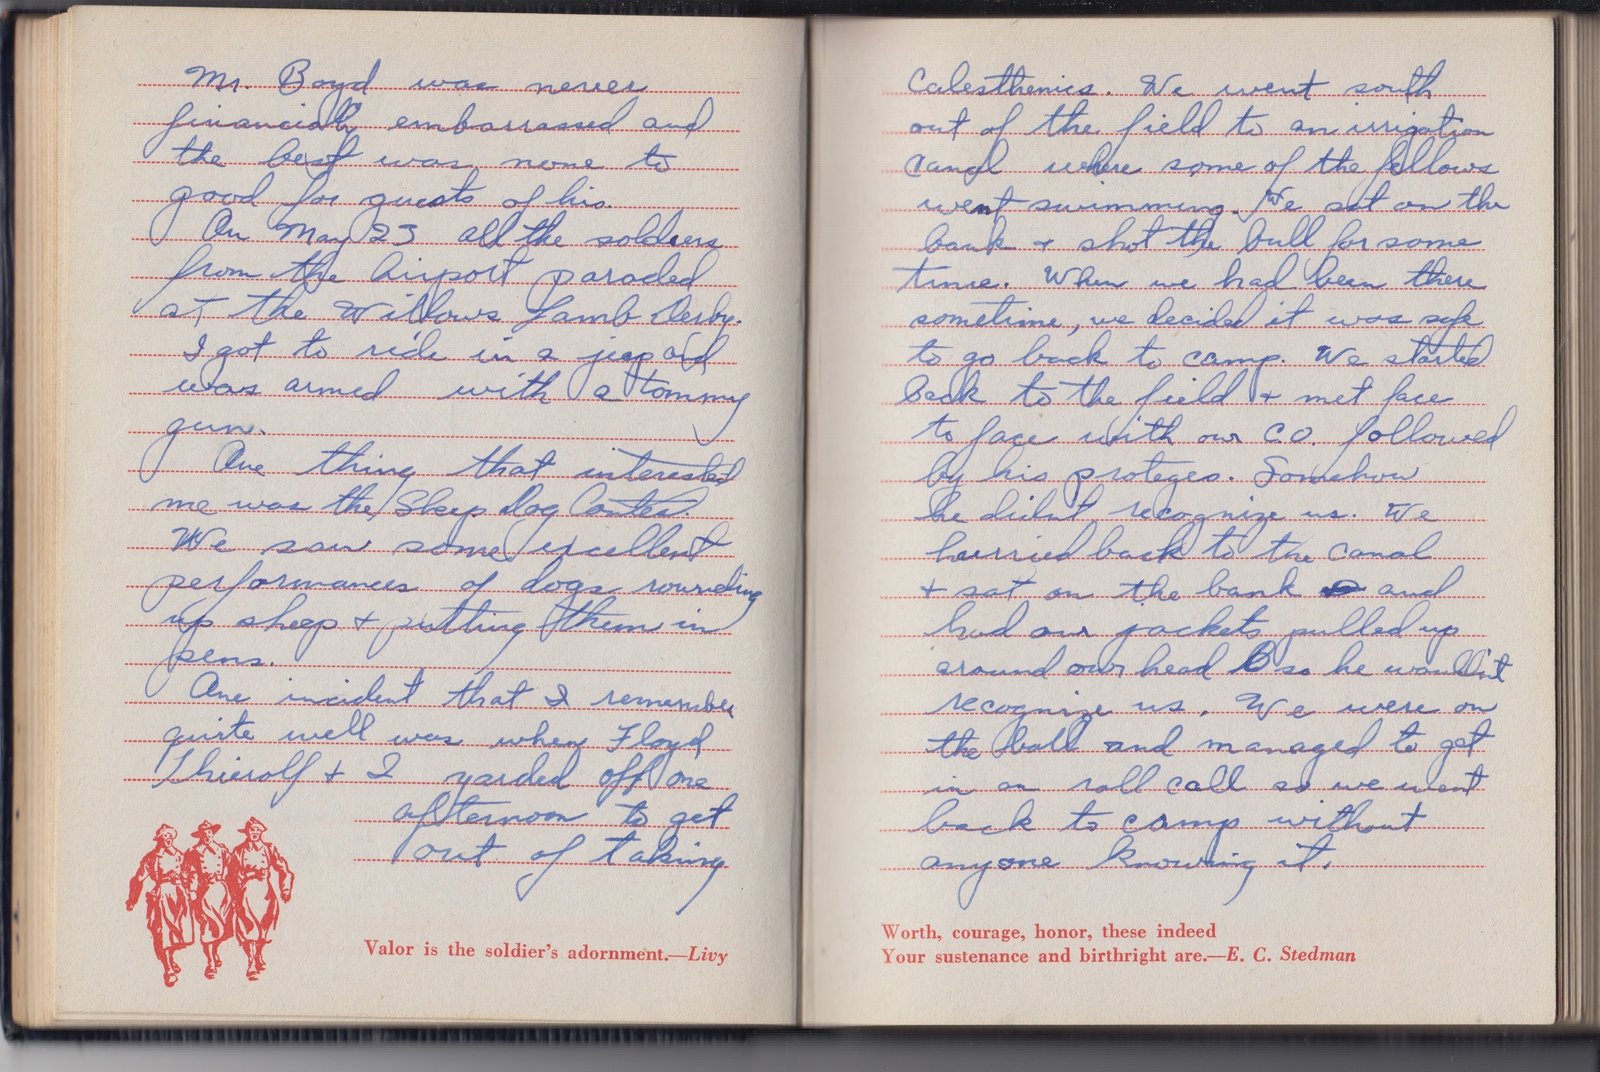 Mr. Boyd was never
financially embarrassed and
the best was none to
good for guests of his.
On May 23 all the soldiers
from the Airport paraded
at the Willows Lamb Derby.
I got to ride in a jeep and
was armed with a tommy
gun.
One thing that interested
me was the Sheep Dog Contest.
We saw some excellent
performances of dogs rounding
up sheep + putting them in
pens.
One incident that I remember
quite well was when Floyd
Thierolf + I yarded off one
afternoon to get
out of taking
Valor is the soldier's adornment.—Livy
Calesthenics. We went south
out of the field to an irrigation
canal where some of the fellows
went swimming. We sat on the
bank + shot the bull for some
time. When we had been there
sometime, we decided it was safe
to go back to camp. We started
back to the field + met face
to face with our C.O. followed
by his proteges. Somehow
he didnt recognize us. We
hurried back to the canal
+ sat on the bank and
had our jackets pulled up
around our head so he wouldn't
recognize us. We were on
the ball and managed to get
in on roll call so we went
back to camp without
anyone knowing it.
Worth, courage, honor, these indeed
Your sustenance and birthright are.—E. C. Stedman